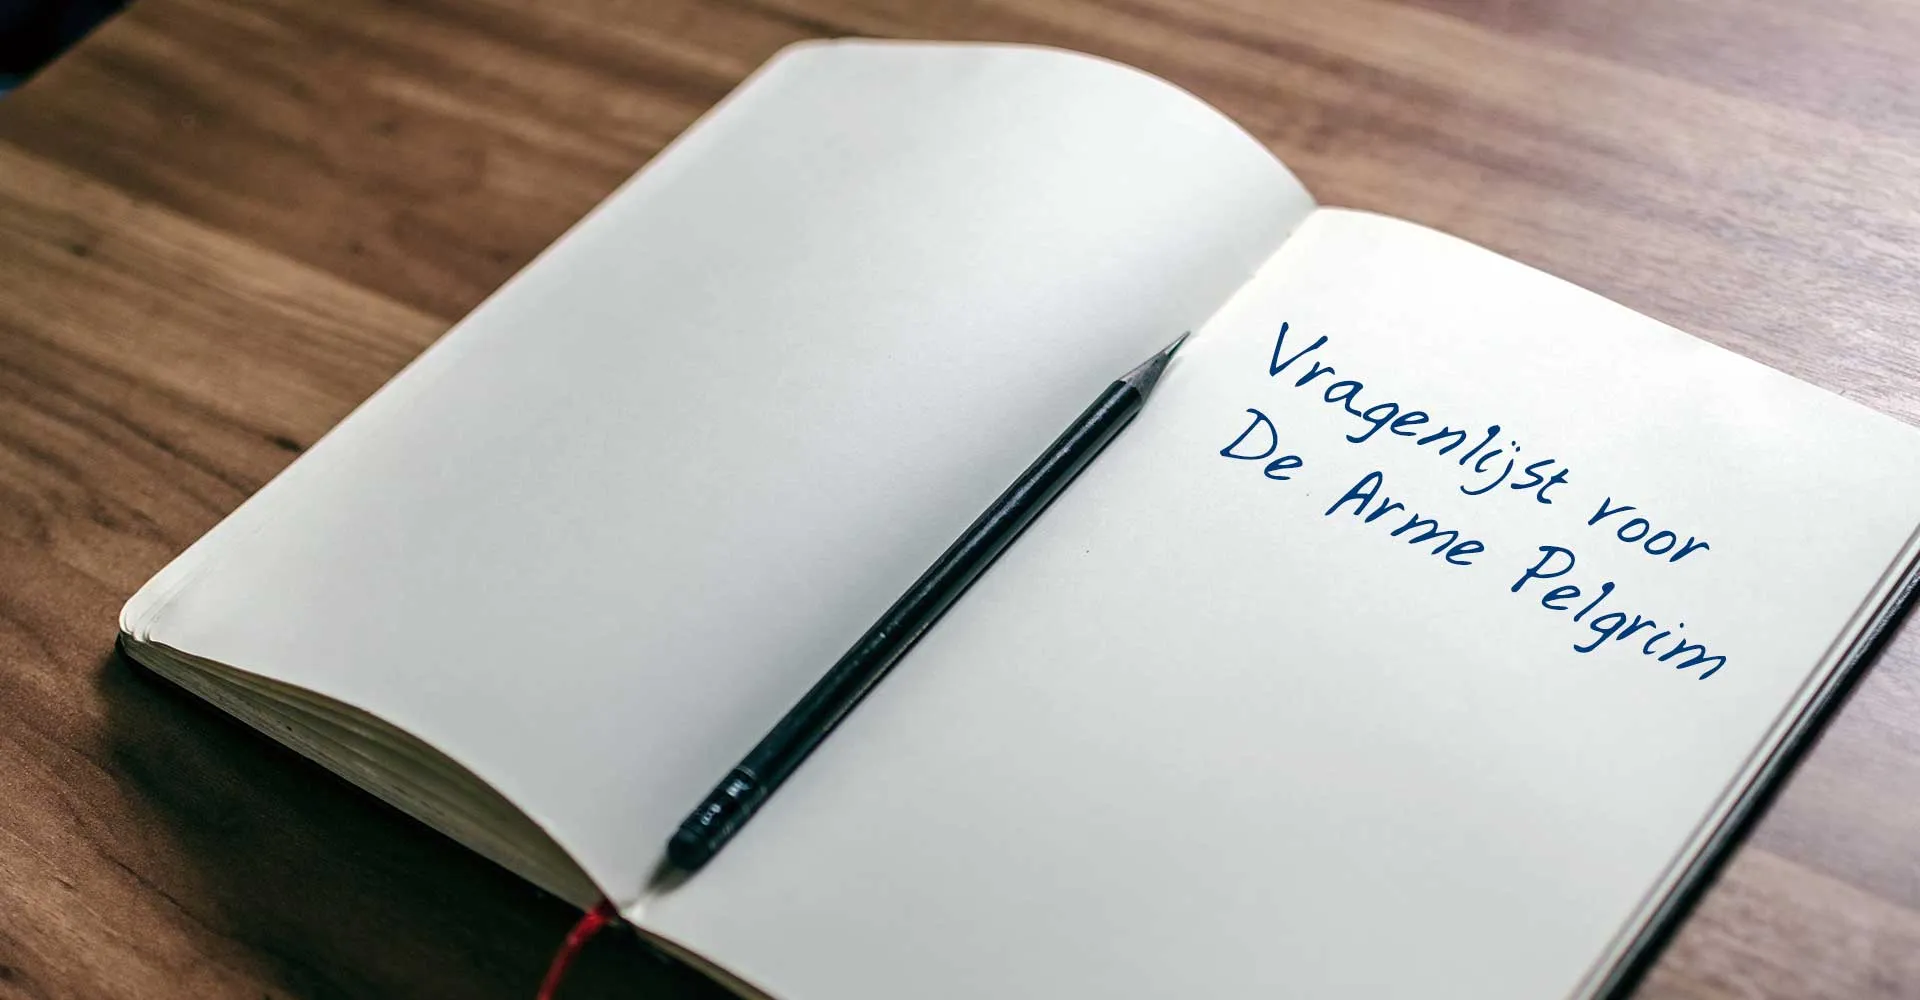 Vragenlijst voor
De Arme Pelgrim